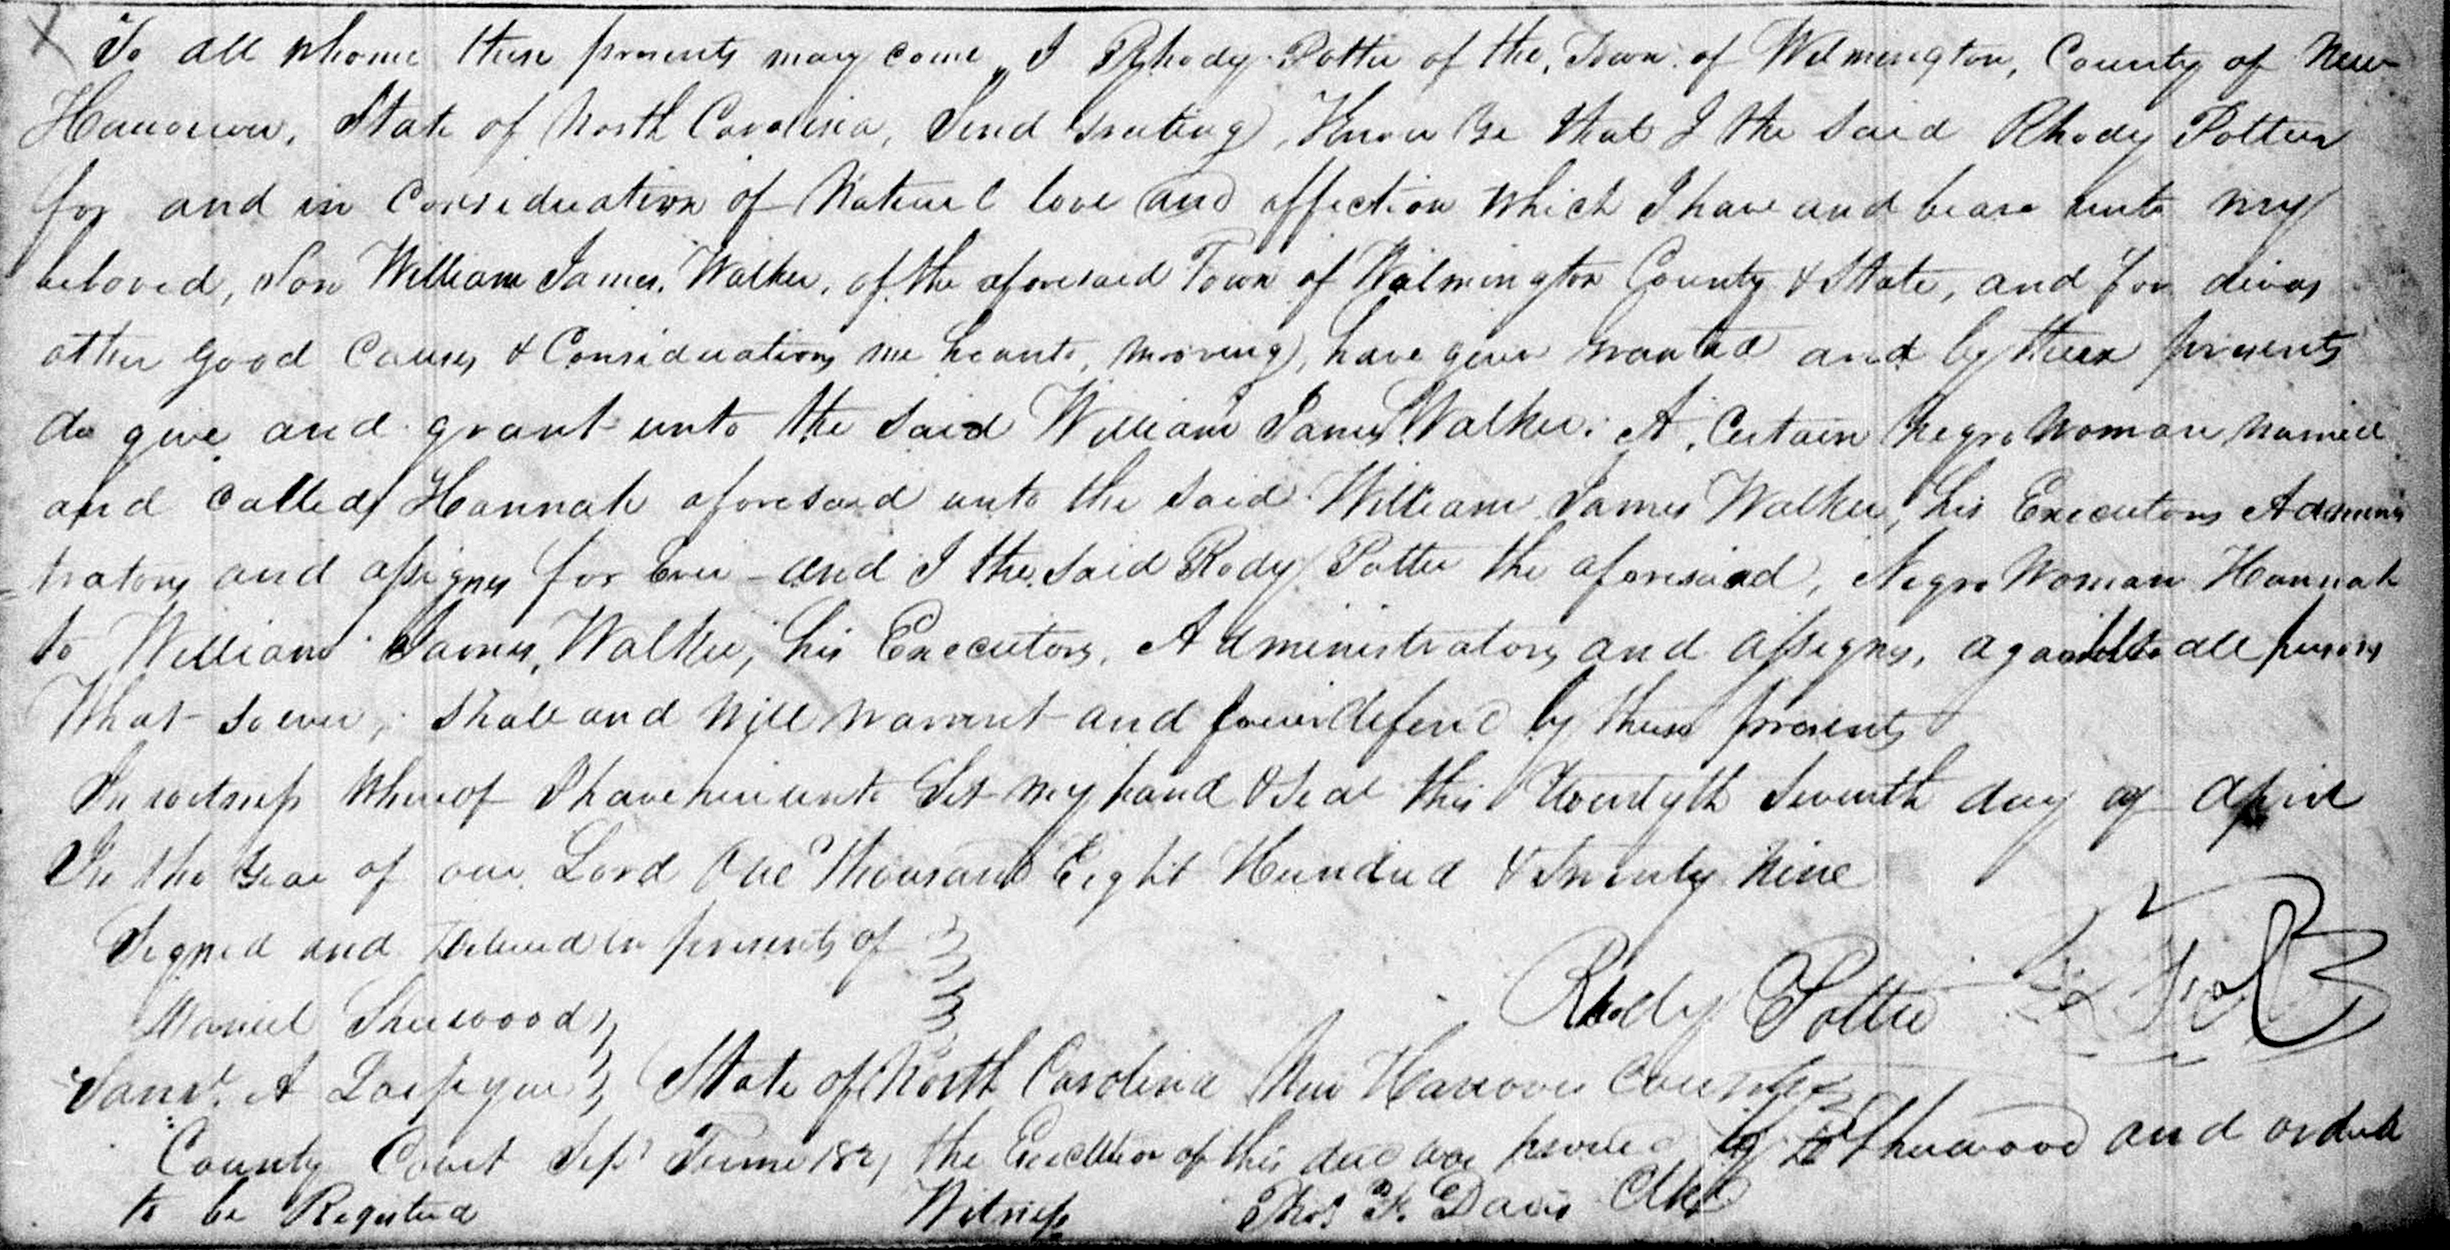 To all whome these presents may come, I Rhody Potter of the, Town of Wilmington, County of New
Hanover, State of North Carolina, Send Greeting, Know Ye that I the said Rhody Potter
for and in Consideration of Natural love and affection which I have and beare unto my
beloved, Son William James, Walker, of the aforesaid Town of Wilmington County & State, and for divers
other good Causes & Considerations me hereunto, mooving, have given granted and by these presents
do give and grant unto the said William James Walker. A, Certain Negro Woman, named
and called Hannah aforesaid unto the said William James Walker, his Executors Adminis
=trators and assignes for Ever - and I the said Rody Potter the aforesaid, Negro Woman Hannah
to William James, Walker, his Executors, Administrators and assigns, against all persons
What-soever, shall and will warrent and forever defend by these presents
In witness Whereof I have hereunto Set my hand & Seal this Twentyth Seventh day of April
In the Year of our Lord One Thousand Eight Hundred & Twenty Nine
Signed and Delivered in presents of
Rhody Potter Seal
Daniel Sherwood
Saml. A Laspeyre State of North Carolina New Hanover County
County Court Sept Term 1829 the Execution of this deed was proved by D Sherwood and orderd
to be Registered
Witness Thos. F. Davis Clk